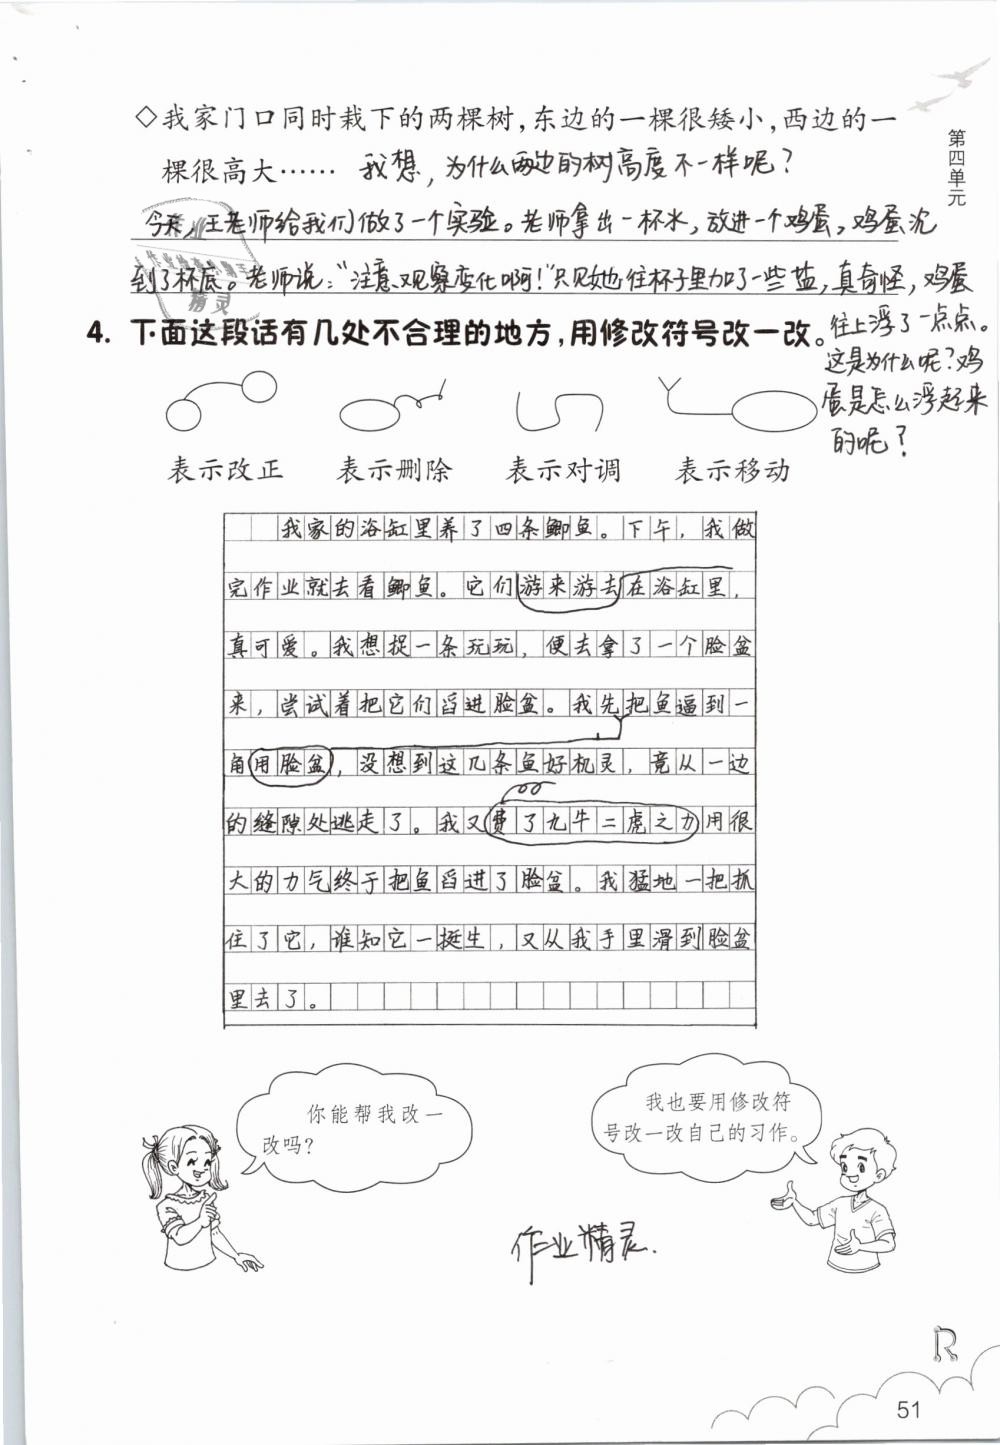 第四单元
◇我家门口同时栽下的两棵树，东边的一棵很矮小，西边的一
棵很高大…… 我想，为什么两边的树高度不一样呢？
今天，王老师给我们做了一个实验。老师拿出一杯水，放进一个鸡蛋，鸡蛋沉
到了杯底。老师说：“注意观察变化啊！”只见她往杯子里加了一些盐，真奇怪，鸡蛋
往上浮了一点点。
这是为什么呢？鸡
蛋是怎么浮起来
的呢？
4. 下面这段话有几处不合理的地方，用修改符号改一改。
表示改正 表示删除 表示对调 表示移动
我家的浴缸里养了四条鲫鱼。下午，我做
完作业就去看鲫鱼。它们游来游去在浴缸里，
真可爱。我想捉一条玩玩，便去拿了一个脸盆
来，尝试着把它们舀进脸盆。我先把鱼逼到一
角用脸盆，没想到这几条鱼好机灵，竟从一边
的缝隙处逃走了。我又费了九牛二虎之力用很
大的力气终于把鱼舀进了脸盆。我猛地一把抓
住了它，谁知它一挺生，又从我手里滑到脸盆
里去了。
你能帮我改一
改吗？
我也要用修改符
号改一改自己的习作。
作业精灵.
R
51